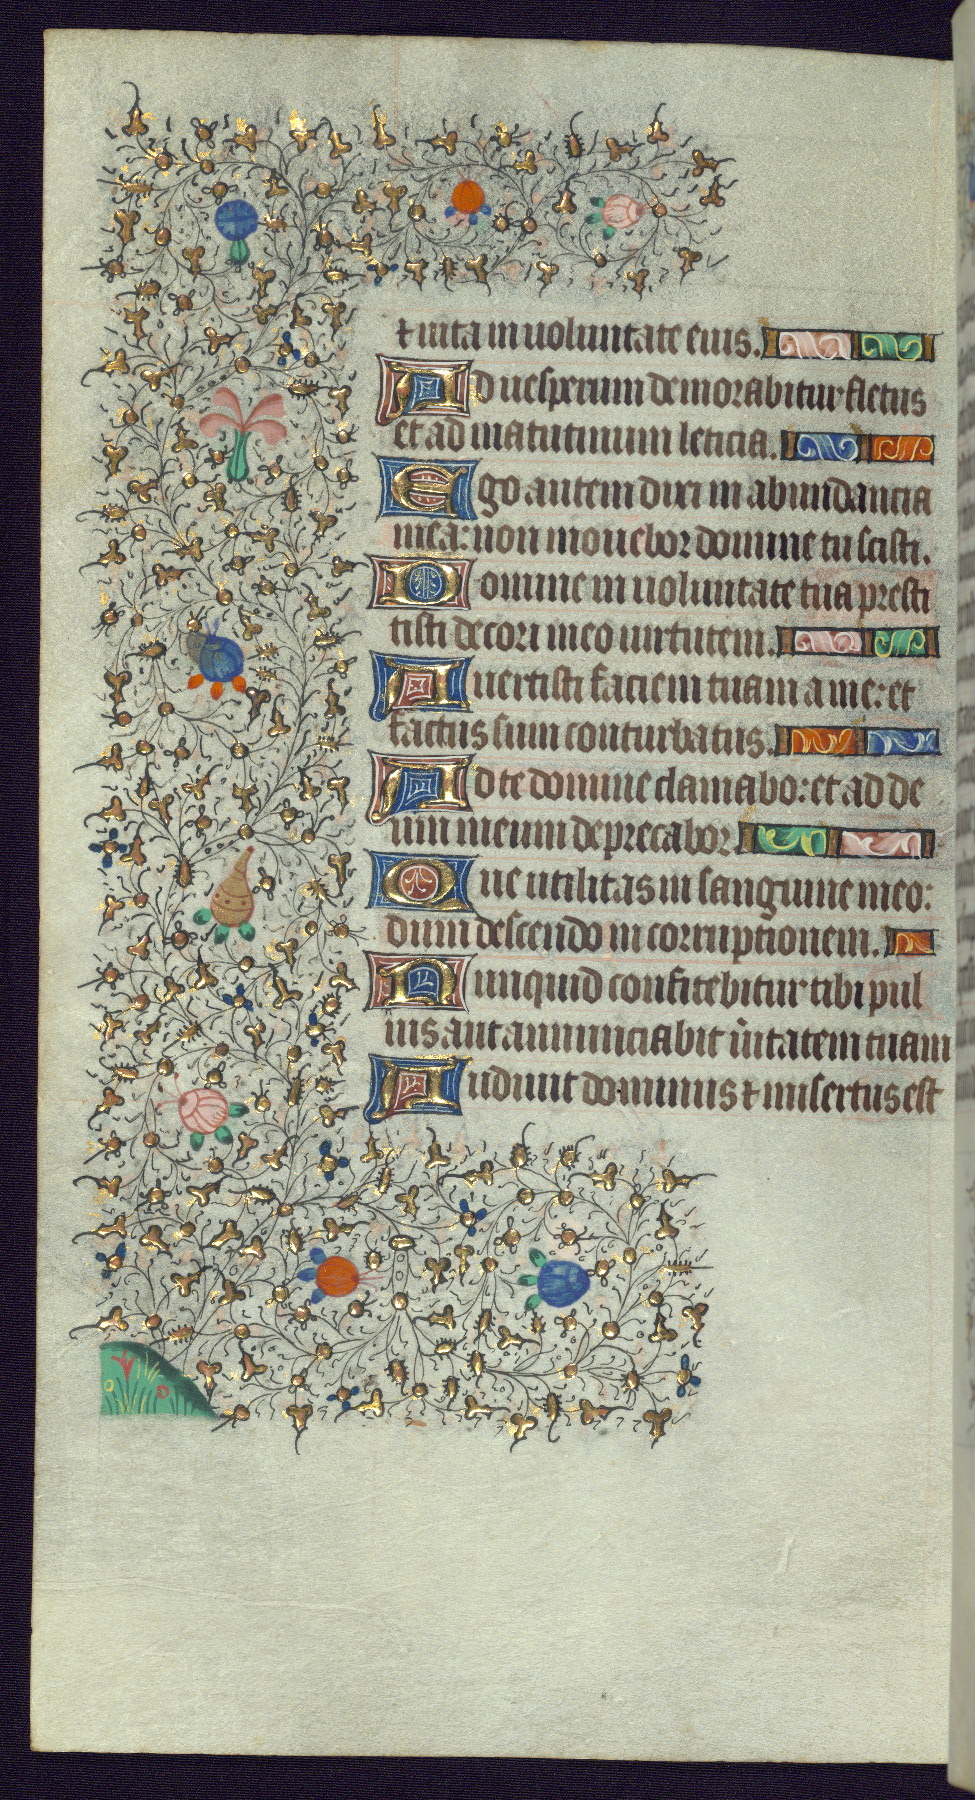 ⁊ uita in uoluntate eius.
Ad uesperum demorabitur fletus
et ad matutinum leticia.
Ego autem dixi in abundancia
mea: non mouebor domine tu scisti.
Domine in uoluntate tua presti
tisti decori meo uirtutem.
Auertisti faciem tuam a me: et
factus sum conturbatus.
Ad te domine clamabo: et ad de
um meum deprecabor
Que utilitas in sanguine meo:
dum descendo in corruptionem.
Nunquid confitebitur tibi pul
uis aut annunciabit ũitatem tuam
Audiuit dominus ⁊ misertus est